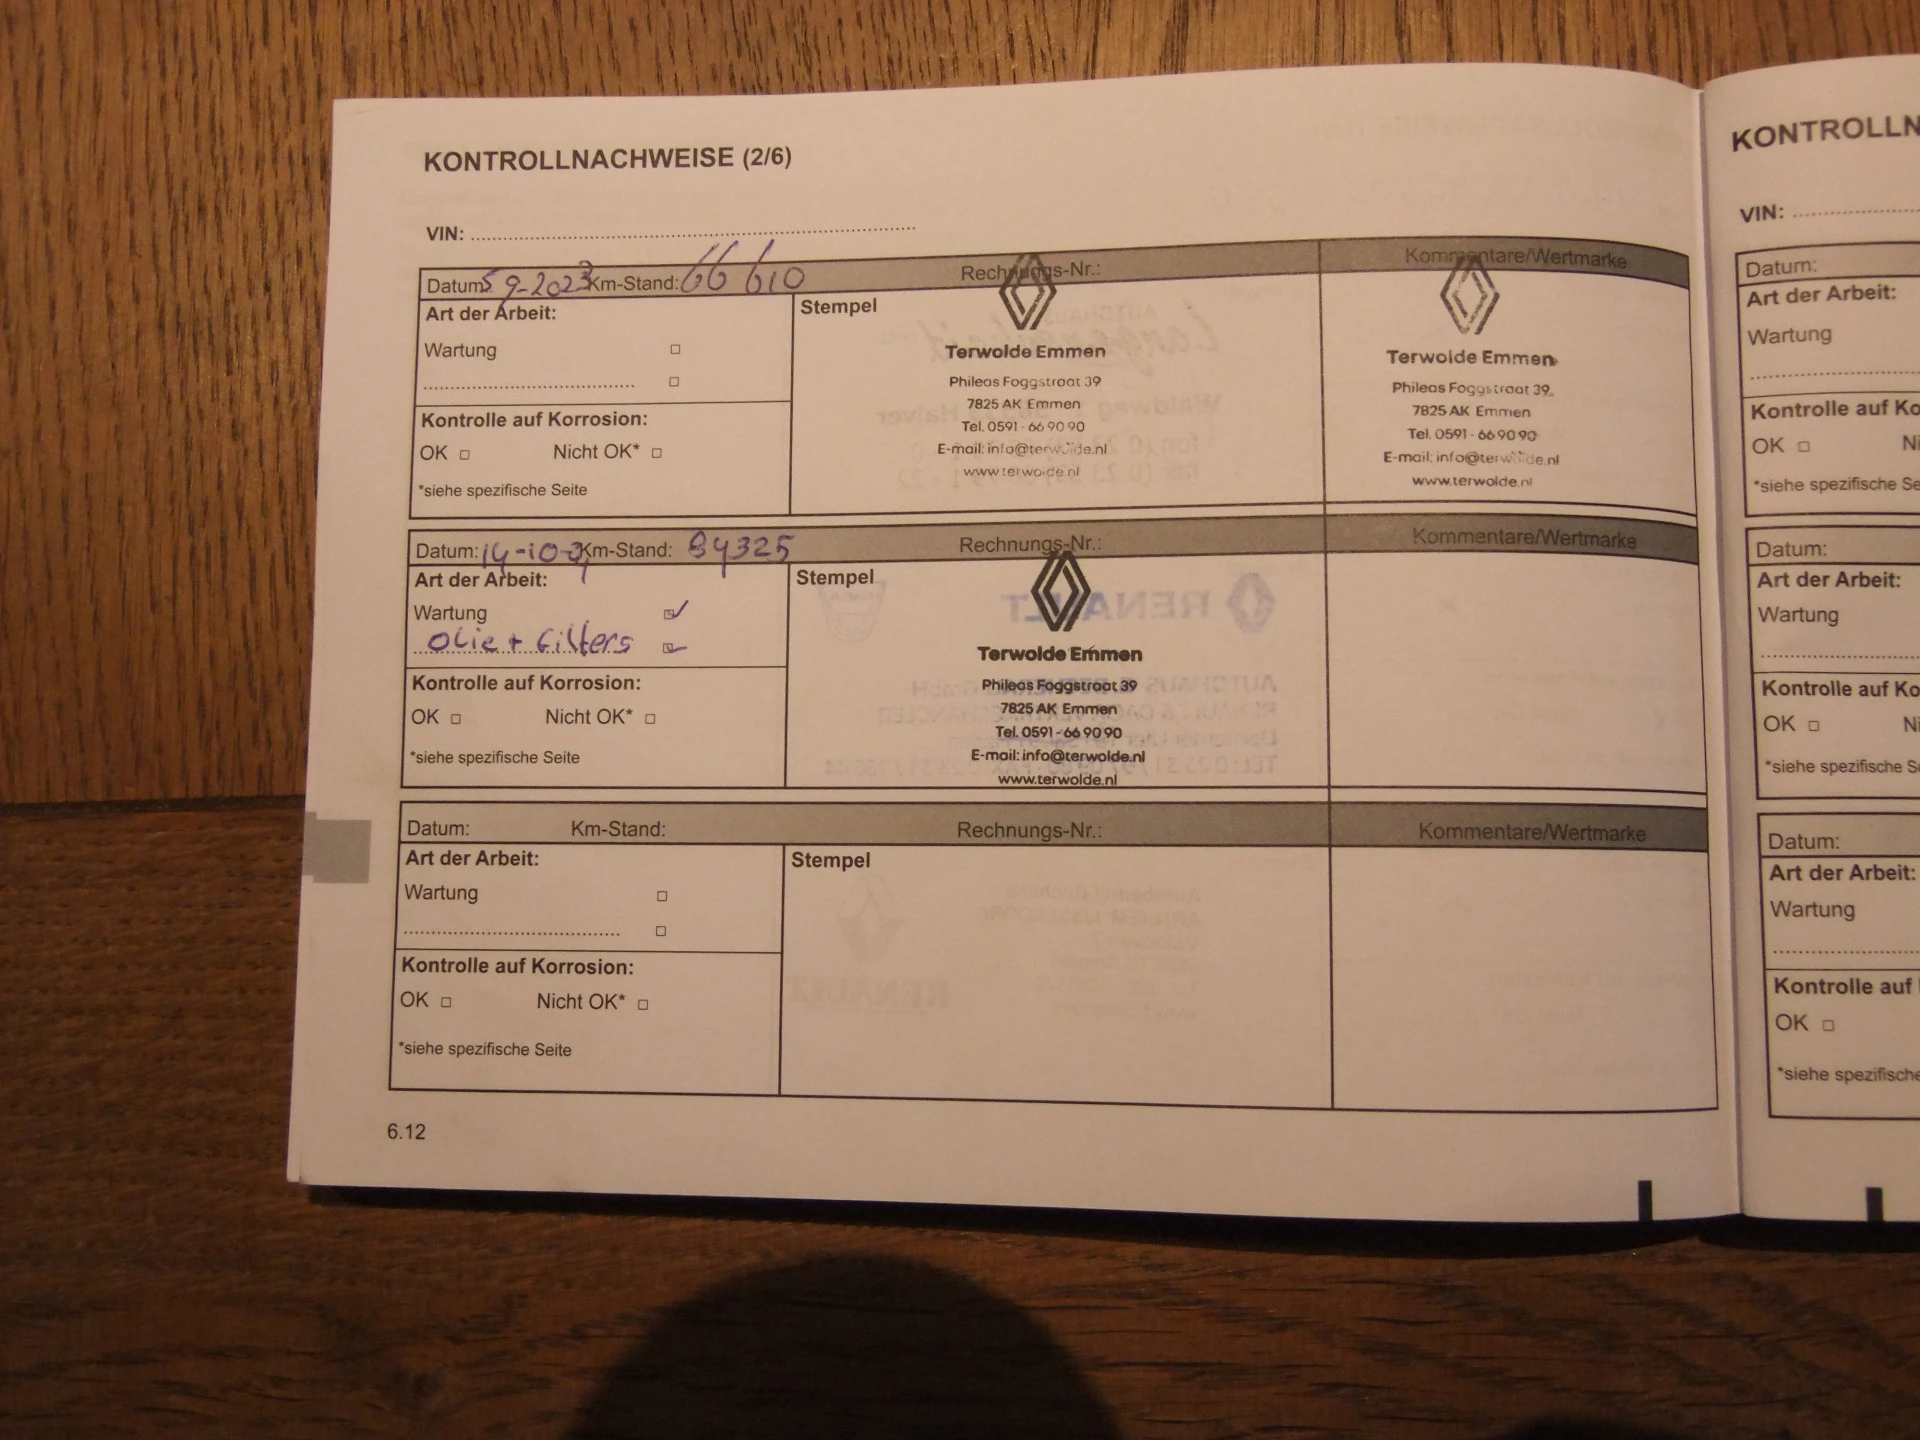 KONTROLLNACHWEISE (2/6)
VIN:
Datum: 5 9-2023 Km-Stand: 66 610 Rechnungs-Nr.: Kommentare/Wertmarke
Art der Arbeit:
Wartung
Kontrolle auf Korrosion:
OK Nicht OK*
*siehe spezifische Seite
Stempel
Terwolde Emmen
Phileas Foggstraat 39
7825 AK Emmen
Tel. 0591 - 66 90 90
E-mail: info@terwolde.nl
www.terwolde.nl
Terwolde Emmen
Phileas Foggstraat 39
7825 AK Emmen
Tel. 0591 - 66 90 90
E-mail: info@terwolde.nl
www.terwolde.nl
Datum: 14-10- Km-Stand: 84325 Rechnungs-Nr.: Kommentare/Wertmarke
Art der Arbeit:
Wartung
Olie + Filters
Kontrolle auf Korrosion:
OK Nicht OK*
*siehe spezifische Seite
Stempel
Terwolde Emmen
Phileas Foggstraat 39
7825 AK Emmen
Tel. 0591 - 66 90 90
E-mail: info@terwolde.nl
www.terwolde.nl
Datum: Km-Stand: Rechnungs-Nr.: Kommentare/Wertmarke
Art der Arbeit:
Wartung
Kontrolle auf Korrosion:
OK Nicht OK*
*siehe spezifische Seite
Stempel
6.12
KONTROLLN
VIN:
Datum:
Art der Arbeit:
Wartung
Kontrolle auf Ko
OK Ni
*siehe spezifische Se
Datum:
Art der Arbeit:
Wartung
Kontrolle auf Ko
OK Ni
*siehe spezifische S
Datum:
Art der Arbeit:
Wartung
Kontrolle auf
OK
*siehe spezifische